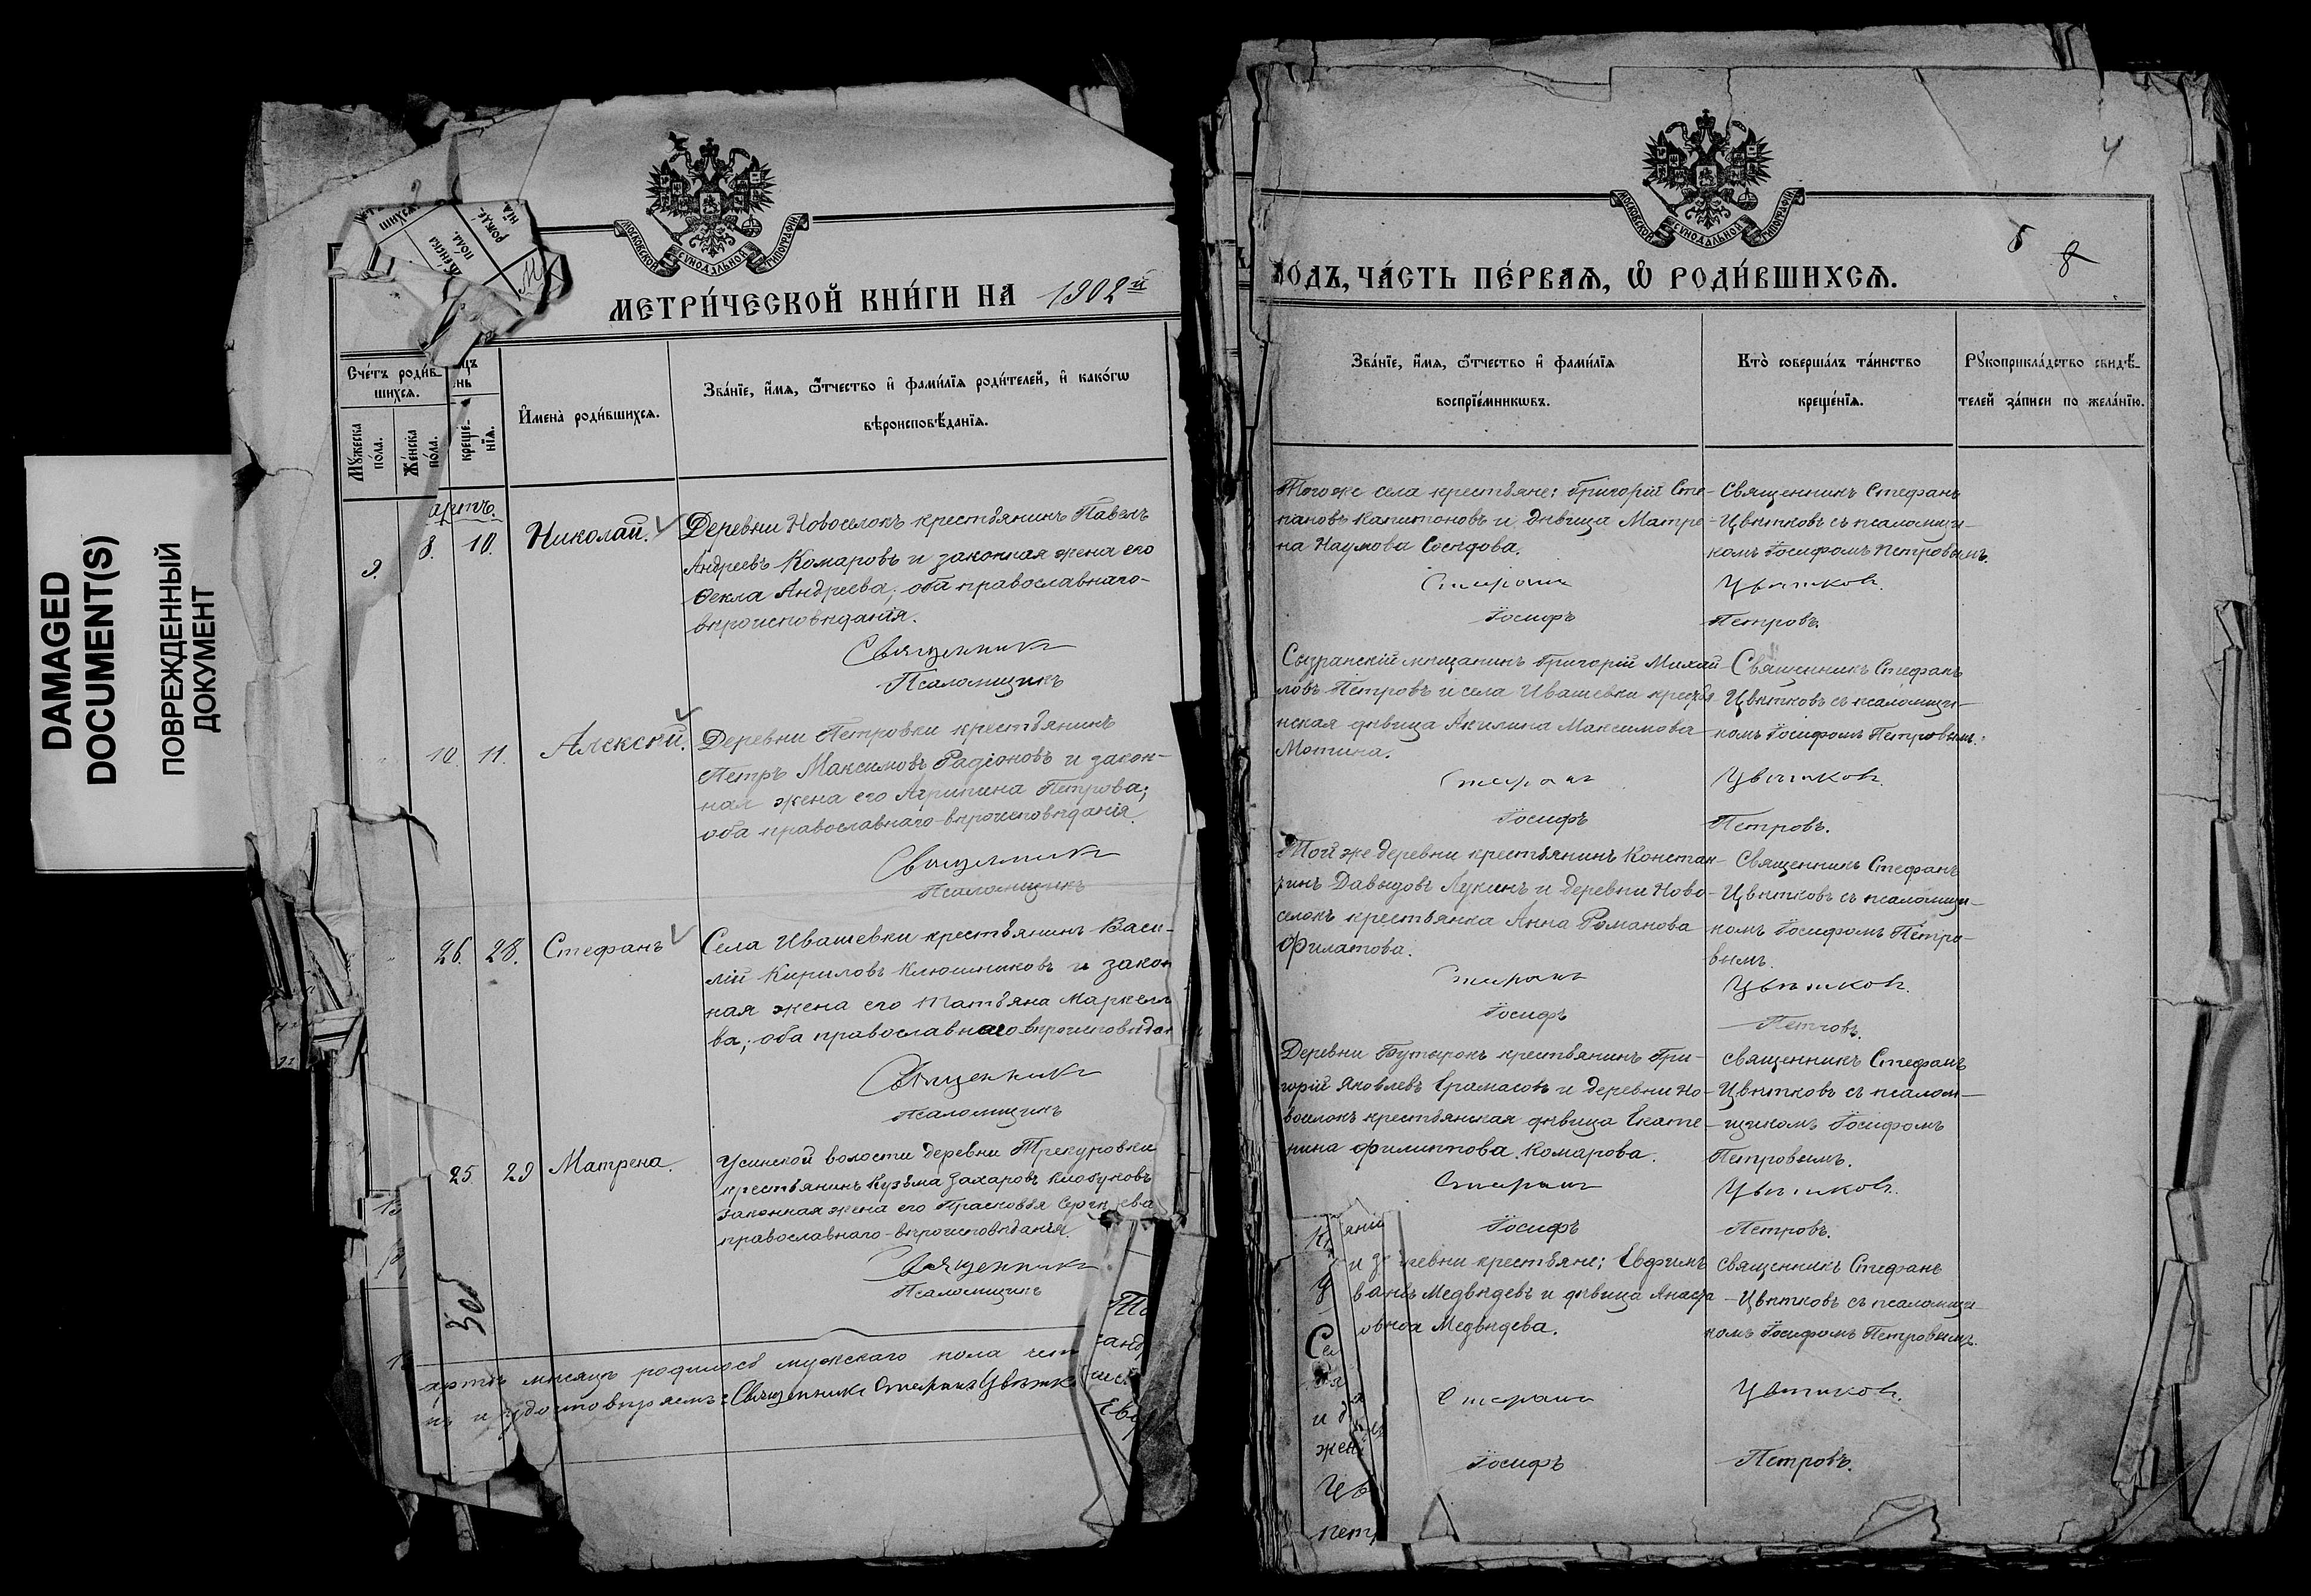 DAMAGED
DOCUMENT(S)
ПОВРЕЖДЕННЫЙ
ДОКУМЕНТ
МОСКОВСКОЙ СѴНОДАЛЬНОЙ ТИПОГРАФІИ
МЕТРИ́ЧЕСКОЙ КНИ́ГИ НА 1902й
Сче́тъ роди́в-
шихся.
Му́жеска
по́ла.
Же́нска
по́ла.
креще-
нїя.
И҆мена̀ роди́вшихся.
Зва́нїе, и҆́мя, ѻ҆́тчество и҆ фами́лїя роди́телей, и҆ како́гѡ
вѣроисповѣ́данїя.
артъ.
9.
8. 10. Николай. Деревни Новоселокъ крестьянинъ Павелъ
Андреевъ Комаровъ и законная жена его
Ѳекла Андреева; оба православнаго-
вѣроисповѣданія.
Священникъ
Псаломщикъ
10. 11. Алексѣй. Деревни Петровки крестьянинъ
Петръ Максимовъ Радіоновъ и закон-
ная жена его Агрипина Петрова;
оба православнаго-вѣроисповѣданія
Священникъ
Псаломщикъ
26. 28. Стефанъ Села Ивашевки крестьянинъ Васи-
лій Кириловъ Клюшниковъ и закон
ная жена его Татьяна Маркелл
ва; оба православнаго-вѣроисповѣдан
Священникъ
Псаломщикъ
25 29 Матрена. Усинской волости деревни Трекуровки
крестьянинъ Кузьма Захаровъ Клобуковъ
законная жена его Прасковья Сергѣева
православнаго-вѣроисповѣданія.
Священникъ
Псаломщикъ
артъ мѣсяцъ родилось мужскаго пола чет
удостовѣряемъ: Священникъ Стефанъ Цвѣтк
МОСКОВСКОЙ СѴНОДАЛЬНОЙ ТИПОГРАФІИ
4
8
ГО́ДЪ, ЧА́СТЬ ПЕ́РВАЯ, Ѽ РОДИ́ВШИХСЯ.
Зва́нїе, и҆́мя, ѻ҆́тчество и҆ фами́лїя
воспрїе́мникѡвъ.
Кто̀ соверша́лъ та́инство
креще́нїя.
Рꙋкоприкла́дство свидѣ́-
телей за́писи по жела́нїю.
Того же села крестьяне: Григорій Сте-
пановъ Капитоновъ и дѣвица Матре-
на Наумова Сосѣдова.
Священникъ Стефанъ
Цвѣтковъ съ псаломщи-
комъ Іосифомъ Петровымъ.
Стефанъ Цвѣтковъ.
Іосифъ Петровъ.
Сызранскій мѣщанинъ Григорій Михай-
ловъ Петровъ и села Ивашевки кресть
янская дѣвица Акилина Максимова
Мотина.
Священникъ Стефанъ
Цвѣтковъ съ псаломщи-
комъ Іосифомъ Петровымъ.
Стефанъ Цвѣтковъ.
Іосифъ Петровъ.
Той же деревни крестьянинъ Констан-
тинъ Давыдовъ Лукинъ и деревни Ново-
селокъ крестьянка Анна Романова
Филатова.
Священникъ Стефанъ
Цвѣтковъ съ псаломщи-
комъ Іосифомъ Петро-
вымъ.
Стефанъ Цвѣтковъ.
Іосифъ Петровъ.
Деревни Бутырокъ крестьянинъ Гри-
горій Яковлевъ Ерамасовъ и деревни Но-
воселокъ крестьянская дѣвица Екате-
рина Филиппова Комарова.
священникъ Стефанъ
Цвѣтковъ съ псалом-
щикомъ Іосифомъ
Петровымъ.
Стефанъ Цвѣтковъ.
Іосифъ Петровъ.
ревни крестьяне; Евфимъ
вановъ Медвѣдевъ и дѣвица Анаста
Медвѣдева.
священникъ Стефанъ
Цвѣтковъ съ псаломщи-
комъ Іосифомъ Петровымъ.
Стефанъ Цвѣтковъ.
Іосифъ Петровъ.